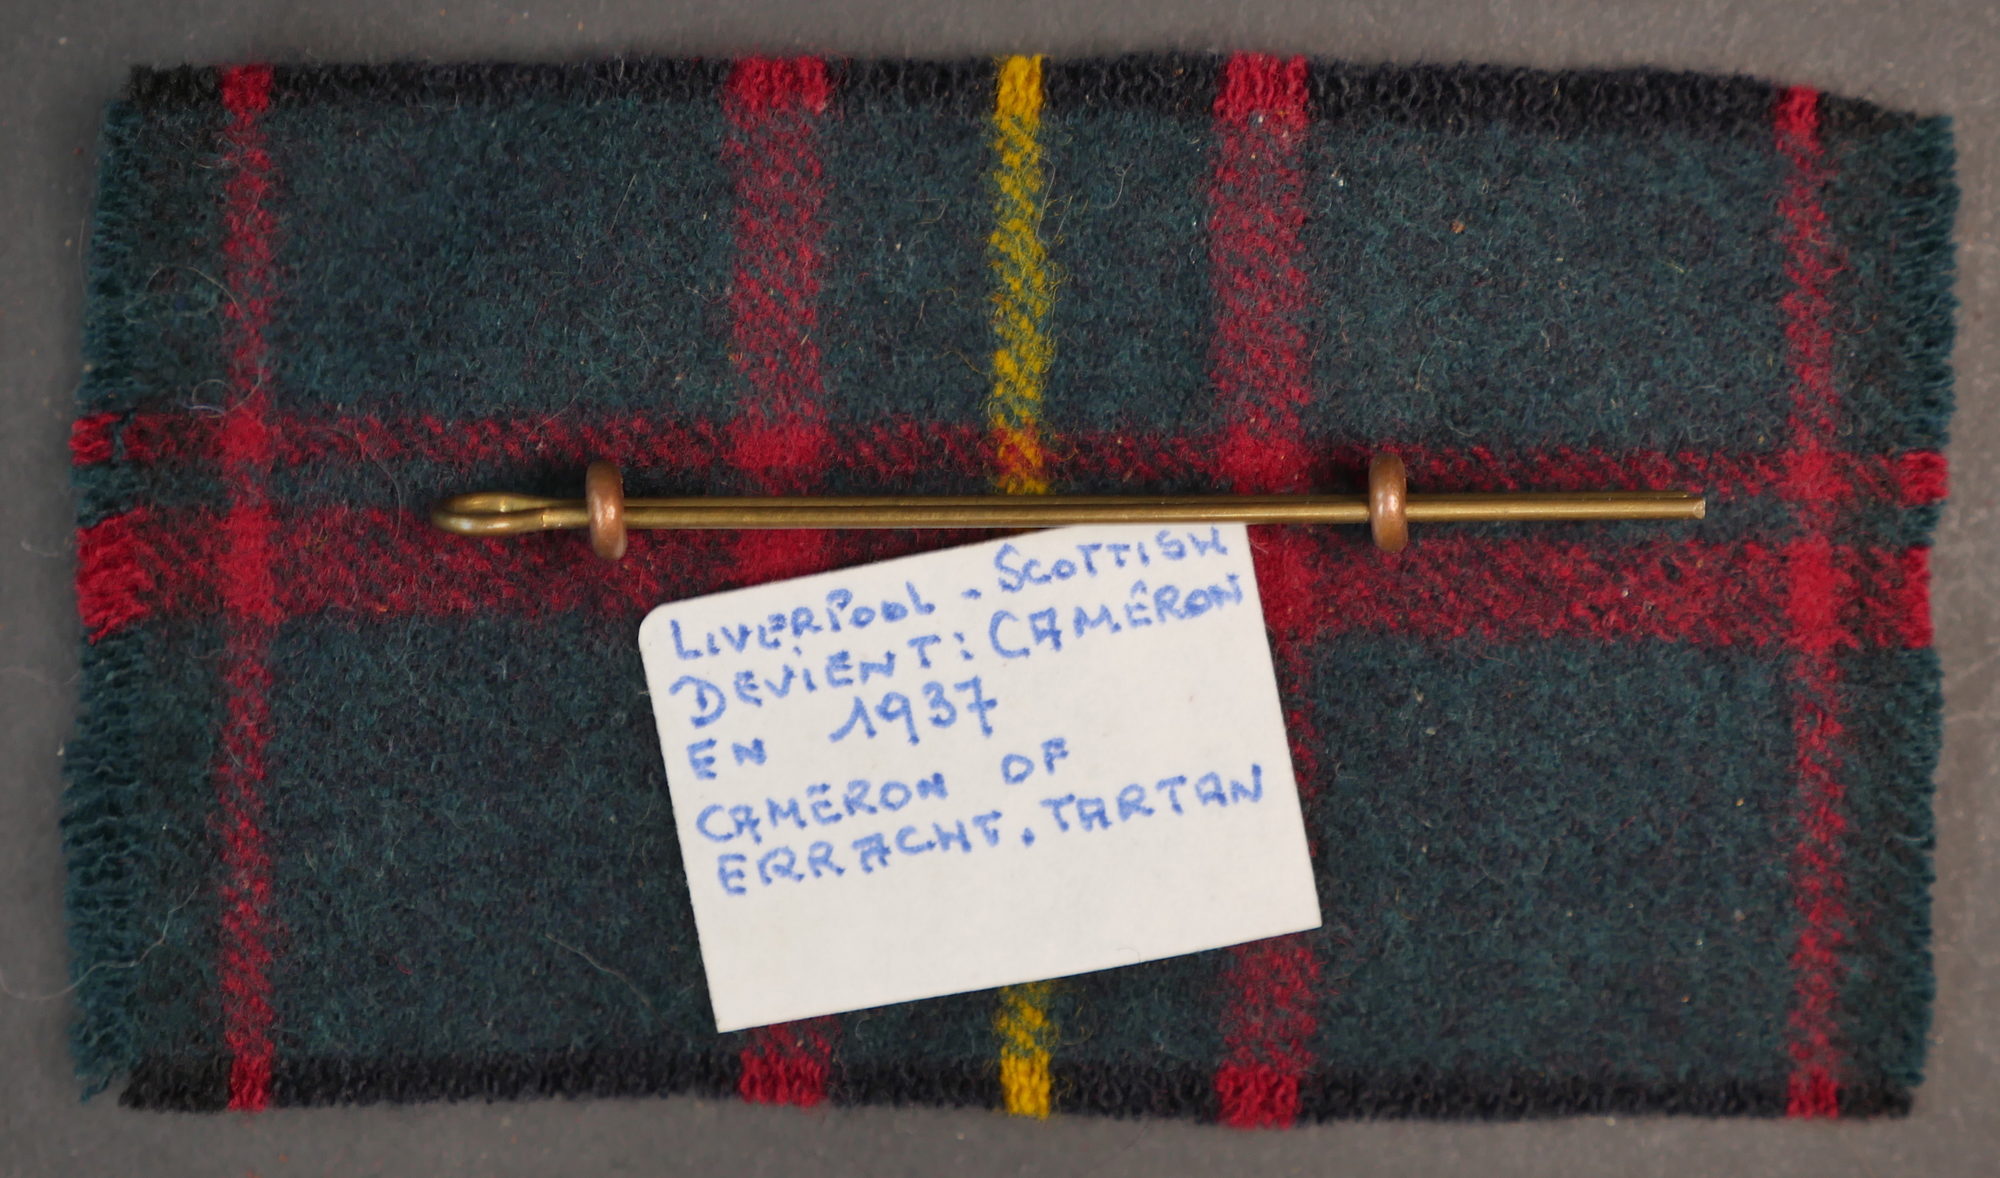 LIVERPOOL - SCOTTISH
DEVIENT: CAMÊRON
EN 1937
CAMËRON OF
ERRACHT. TARTAN